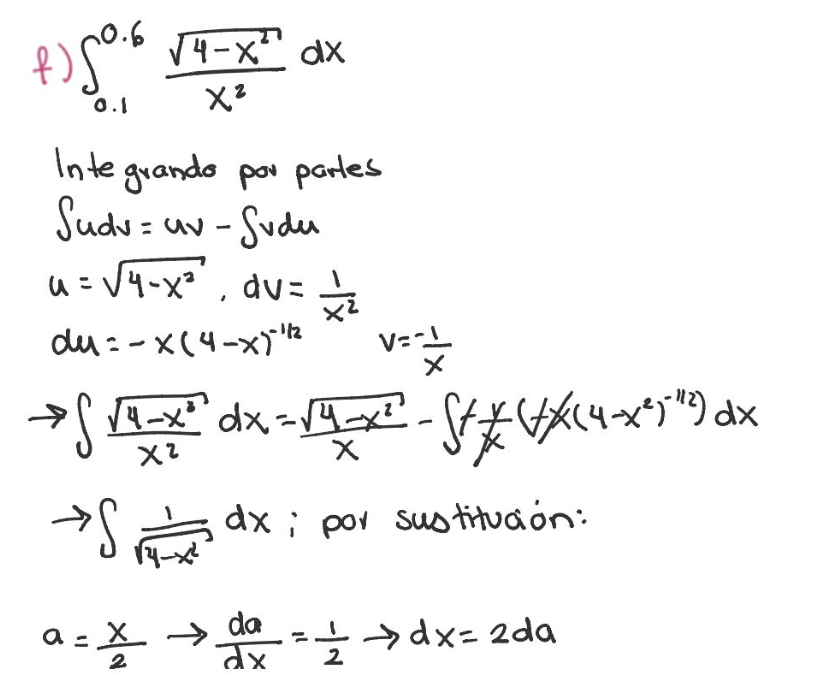 f) ∫_{0.1}^{0.6} √(4-x²) / x² dx
Integrando por partes
∫udv = uv - ∫vdu
u = √(4-x²) , dv = 1/x²
du = -x(4-x)^{-1/2} v = -1/x
→ ∫ √(4-x²)/x² dx = √(4-x²)/x - ∫ + 1/x (+x(4-x²)^{-1/2}) dx
→ ∫ 1/√(4-x²) dx ; por sustitución:
a = x/2 → da/dx = 1/2 → dx = 2da